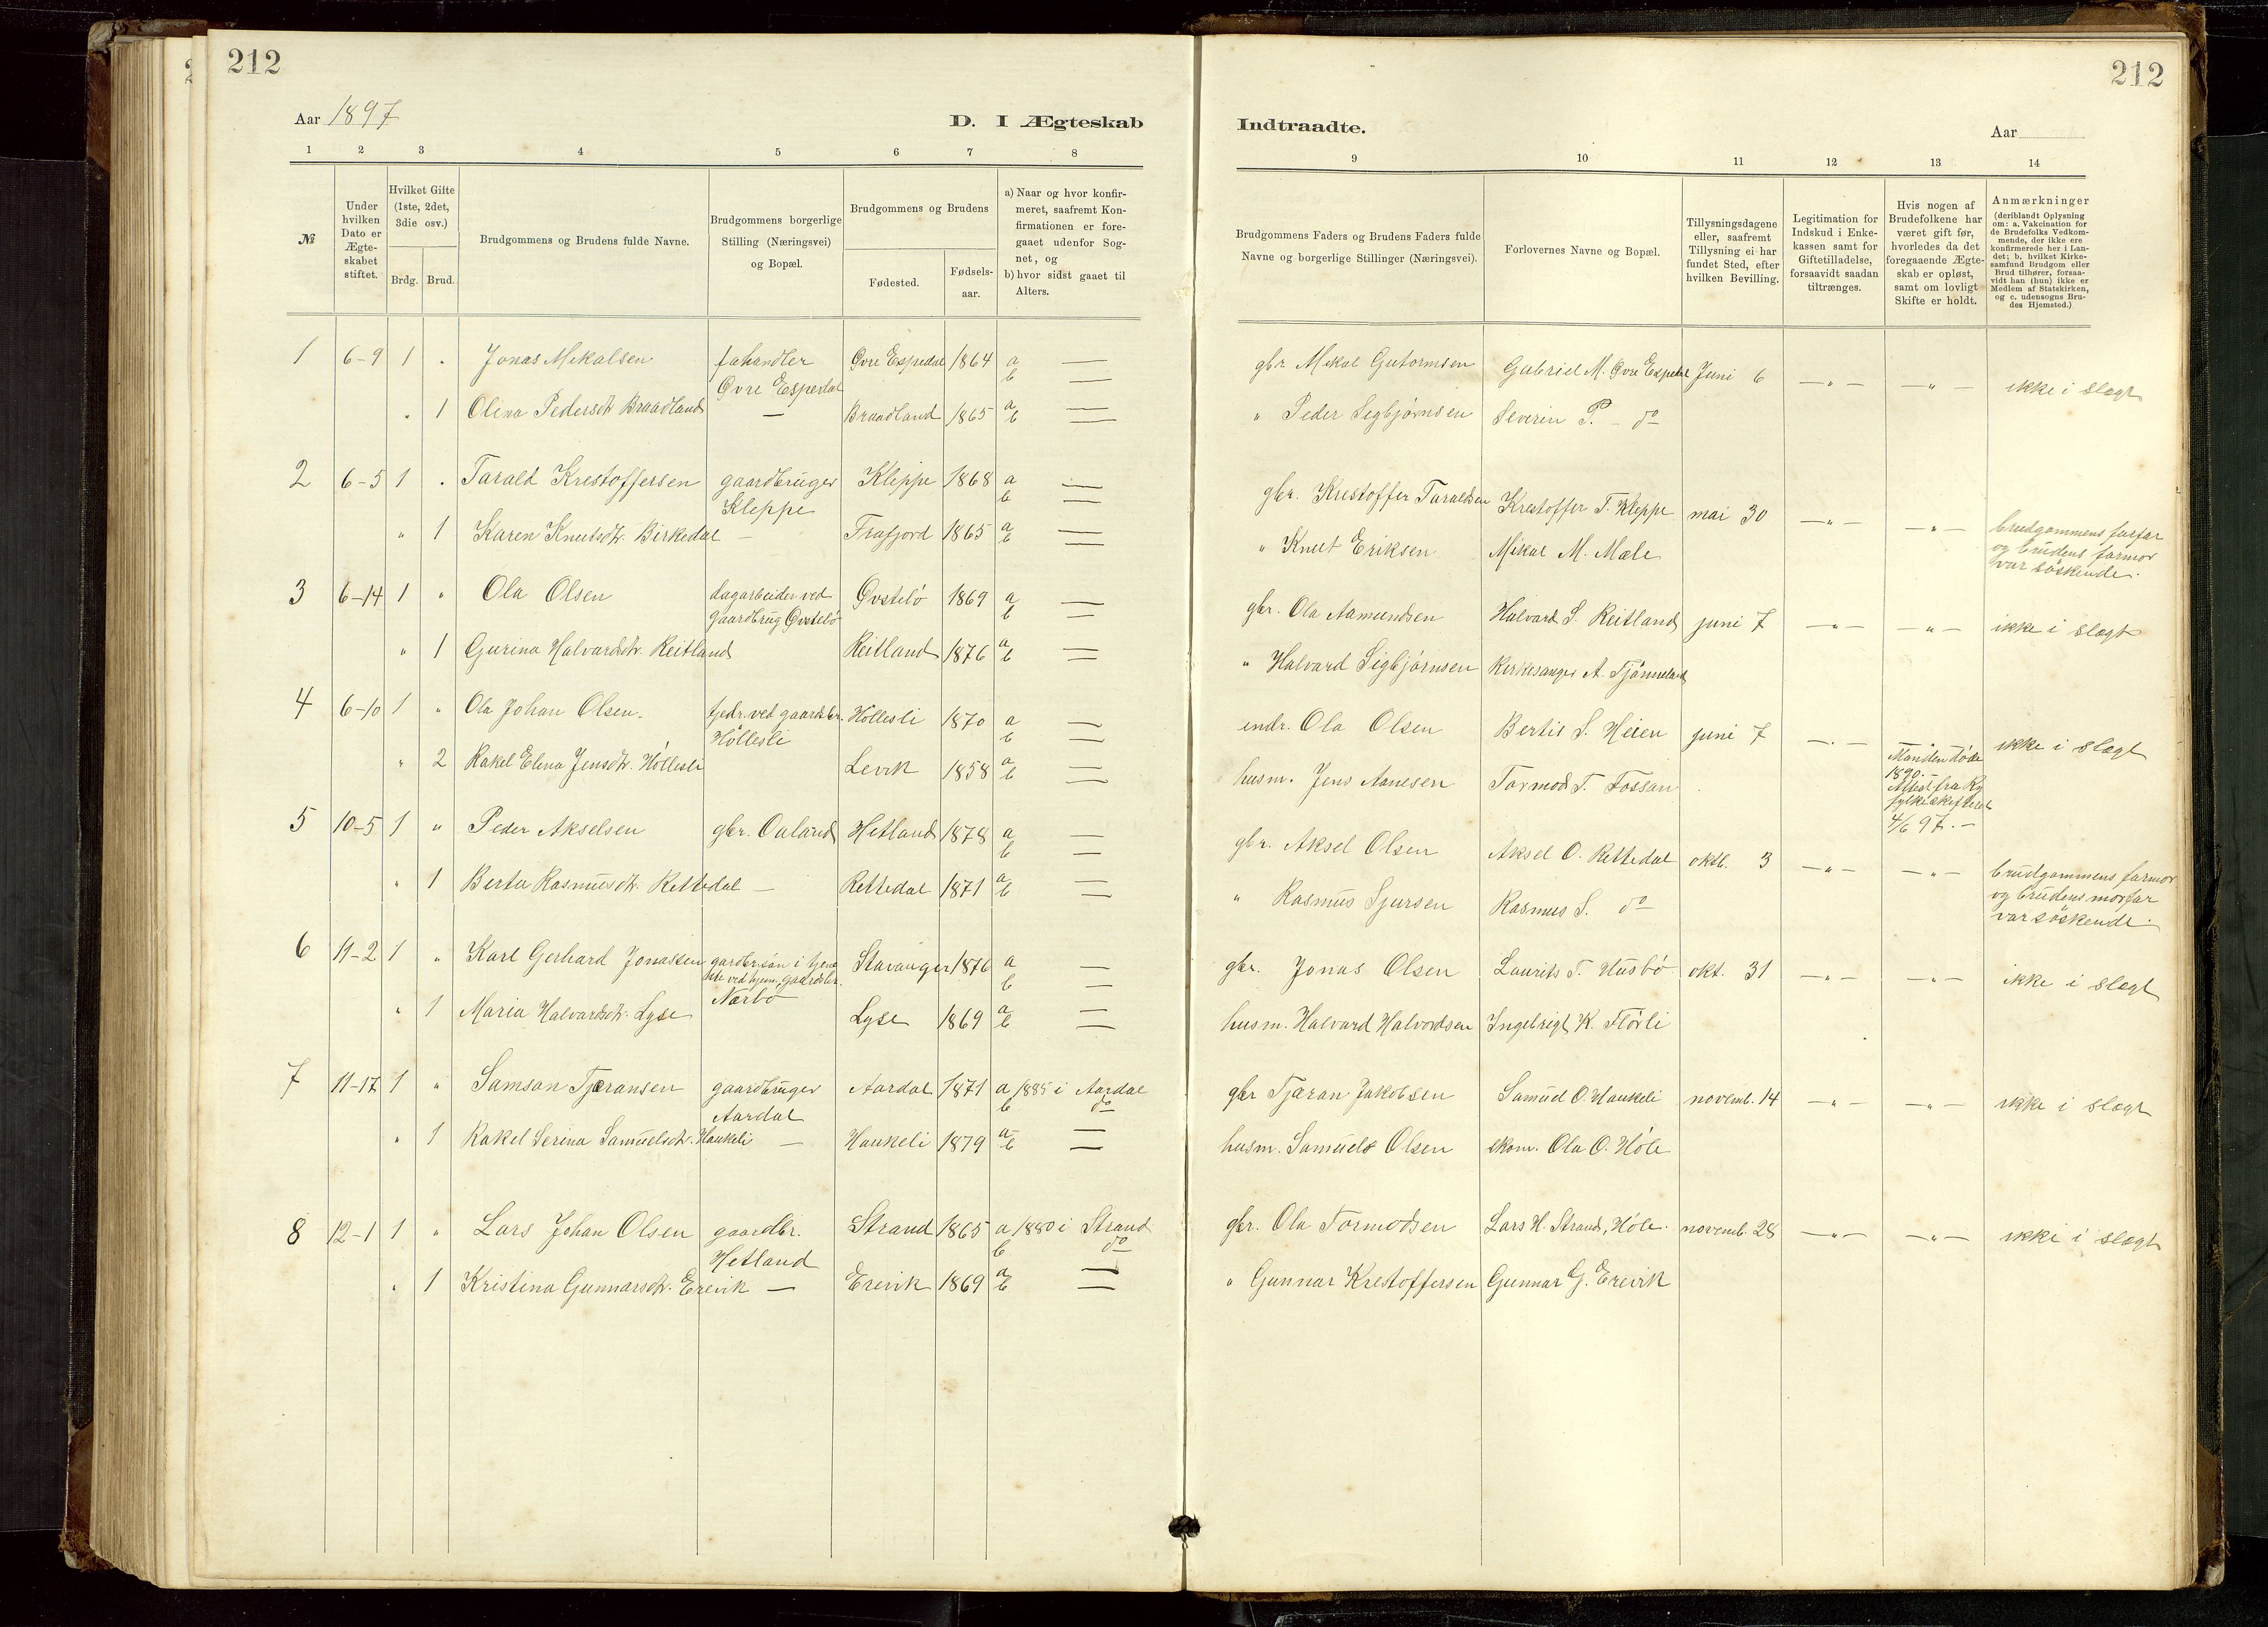 212
Aar 1897
D. I Ægteskab
1 2 3 4 5 6 7 8
№
Under hvilken Dato er Ægte-skabet stiftet.
Hvilket Gifte (1ste, 2det, 3die osv.)
Brdg. Brud.
Brudgommens og Brudens fulde Navne.
Brudgommens borgerlige Stilling (Næringsvei) og Bopæl.
Brudgommens og Brudens
Fødested.
Fødsels-aar.
a) Naar og hvor konfir-meret, saafremt Kon-firmationen er fore-gaaet udenfor Sog-net, og
b) hvor sidst gaaet til Alters.
1 6-9 1 " Jonas Mekalsen fehandler Øvre Espedal Øvre Espedal 1864 a — b —
" 1 Olina Pedersdtr. Braadland — Braadland 1865 a — b —
2 6-5 1 " Tarald Krestoffersen gaardbruger Kleppe Kleppe 1868 a — b —
" 1 Karen Knutsdtr. Birkedal — Frafjord 1865 a — b —
3 6-14 1 " Ola Olsen dagarbeider ved gaardbrug Øvstebö Øvstebö 1869 a — b —
" 1 Gurina Halvardsdtr. Reitland Reitland 1876 a — b —
4 6-10 1 " Ola Johan Olsen. tjedr. ved gaardsbr. Höllesli Höllesli 1870 a — b —
" 2 Rakel Elena Jensdtr. Höllesli Levik 1858 a — b —
5 10-5 1 " Peder Akselsen gbr. Oaland Hetland 1878 a — b —
" 1 Berta Rasmusdtr. Rettedal — Rettedal 1871 a — b —
6 11-2 1 " Karl Gerhard Jonassen gardbr.sön i ved hjem. gaardsbr. Nærbö Stavanger 1876 a — b —
" 1 Maria Halvardsdtr. Lyse Lyse 1869 a — b —
7 11-17 1 " Samson Tjæransen gaardbruger Aardal Aardal 1871 a 1885 i Aardal b do
" 1 Rakel Serina Samuelsdtr. Haukeli — Haukeli 1879 a — b —
8 12-1 1 " Lars Johan Olsen gaardbr. Hetland Strand 1865 a 1880 i Strand b do
" 1 Kristina Gunnarsdtr. Erevik — Erevik 1869 a — b —
212
Indtraadte.
Aar
9 10 11 12 13 14
Brudgommens Faders og Brudens Faders fulde Navne og borgerlige Stillinger (Næringsvei).
Forlovernes Navne og Bopæl.
Tillysningsdagene eller, saafremt Tillysning ei har fundet Sted, efter hvilken Bevilling.
Legitimation for Indskud i Enke-kassen samt for Giftetilladelse, forsaavidt saadan tiltrænges.
Hvis nogen af Brudefolkene har været gift før, hvorledes da det foregaaende Ægte-skab er opløst, samt om lovligt Skifte er holdt.
Anmærkninger
(deriblandt Oplysning om: a. Vakcination for de Brudefolks Vedkom-mende, der ikke ere konfirmerede her i Lan-det; b. hvilket Kirke-samfund Brudgom eller Brud tilhører, forsaa-vidt han (hun) ikke er Medlem af Statskirken, og c. udensogns Bru-des Hjemsted.)
gbr. Mekal Gutormsen Gabriel M. Øvre Espedal Juni 6 —"— —"— ikke i slægt
" Peder Sigbjörnsen Severin P. — do
gbr. Krestoffer Taraldsen Krestoffer T. Kleppe mai 30 —"— —"— brudgommens farfar og brudens farmor var söskende.
" Knut Eriksen Mikal M. Mæle
gbr. Ola Aamundsen Halvard S. Reitland juni 7 —"— —"— ikke i slægt
" Halvard Sigbjörnsen Kirkesanger A. Tjörmeland
endr. Ola Olsen Bertil S. Heien juni 7 —"— Manden döde 1890. — Attest fra Ry fylke skifteret 4/6 97. — ikke i slægt
husm. Jens Aanesen Tormod T. Fossan
gbr. Aksel Olsen Aksel O. Rettedal oktb. 3 —"— —"— brudgommens farmor og brudens morfar var söskende.
" Rasmus Sjursen Rasmus S. do
gbr. Jonas Olsen Laurits T. Husbö okt. 31 —"— —"— ikke i slægt
husm. Halvard Halvordsen Ingebrigt K. Flörli
gbr Tjæran Jakobsen Samuel O. Haukeli novemb. 14 —"— —"— ikke i slægt
husm. Samuels Olsen skom. Ola O. Höle
gbr. Ola Tormodsen Lars H. Strand, Höle. novemb. 28 —"— —"— ikke i slægt
" Gunnar Krestoffersen Gunnar G. Erevik